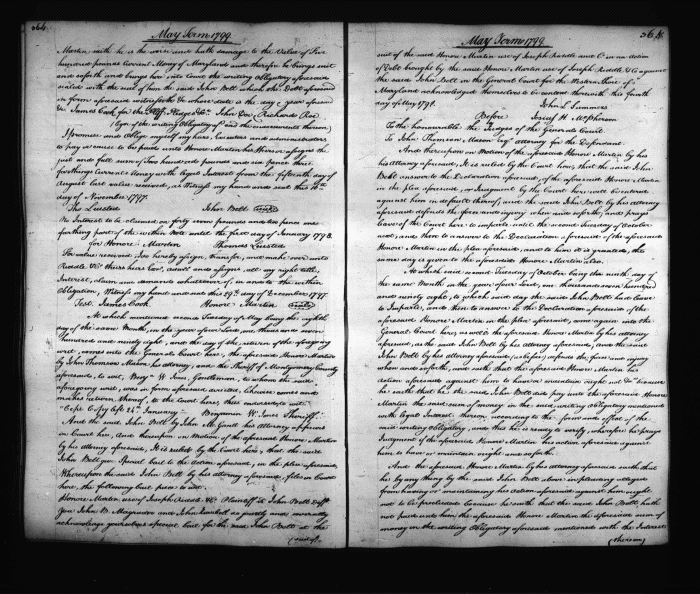 564
May Term 1799
Martin saith he is the worse and hath damage to the Value of Five
hundred pounds Current Money of Maryland and therefore he brings suit
and soforth and brings here into Court the writing Obligatory aforesaid
sealed with the seal of him the said John Bott which the Debt aforesaid
in form aforesaid witnesseth the whose date is the day & year aforesd
&c James Cook for the Plff. Pledges &c. John Doe Richard Roe
Copy of the writing Obligatory and the assurements thereon
I promise and Oblige myself my heirs, Executors and administrators
to pay or cause to be paid unto Honore Martin his heirs or assigns the
just and full sum of Two hundred pounds and six pence three
farthings Current Money with legal Interest from the fifteenth day of
August last value received, as Witness my hand and seal this
day of November 1797.
John Bott (seal)
No Interest to be claimed on forty seven pounds and ten pence one
farthing part of the within Debt untill the first day of January 1798.
for Honore Martin
For value received I do hereby assign, transfer, and make over unto
Riddle & Co. theirs heirs Exs, adms and assigns, all my right title,
Interest, claim and demands whatsoever of in and to the within
Obligation, Witness my hand and seal this 29th day of December 1797
Test. James Cook Honore Martin (seal)
At which mentioned second Tuesday of May being the eighth
day of the same Month, in the year of our Lord, one thousand seven
hundred and ninety eight, and the day of the return of the aforegoing
writ, comes into the General Court here, the aforesaid Honore Martin
by John Thomson Mason his attorney, and the Sheriff of Montgomery County
aforesaid, to wit, Benjn. W. Jones, Gentleman, to whom the said
aforegoing writ, was in form aforesaid directed, likewise comes and
makes return thereof, to the Court here, thus indorsed, to wit
"Cepi Copy left 24th January Benjamin W Jones Sheriff.
And the said John Bott by John Mc. his Attorney appears
in Court here, And thereupon on Motion of the aforesaid Honore Martin
by his attorney aforesaid, It is ruled by the Court here, that the said
John Bott give Special bail to the action aforesaid, in the plea aforesaid,
Whereupon the said John Bott by his attorney aforesaid, files in Court
here, the following bail piece to wit.
Honore Martin use of Joseph Riddle &c. Plaintiff vs John Bott Deft
You John B. Magruder and John as jointly and severally
acknowledge yourselves special bail for the said John Bott at the
(suit of)
565
May Term 1799
suit of the said Honore Martin use of Joseph Riddle and Co. in an action
of Debt brought by the said Honore Martin use of Joseph Riddle & Co against
the said John Bott in the General Court for the Western Shore of
Maryland acknowledged themselves to be content therewith this fourth
day of May 1798.
John L Summers
Before Josiah H McPherson
To the honourable the Judges of the General Court.
To John Thomson Mason esqr. attorney for the Defendant.
And thereupon on Motion of the aforesaid Honore Martin by his
his Attorney aforesaid, It is ruled by the Court here, that the said John
Bott answer to the Declaration aforesaid, of the aforesaid Honore Martin
in the plea aforesaid, or Judgment by the Court here will be entered
against him in default thereof; and the said John Bott by his attorney
aforesaid defends the force and injury when and soforth, and prays
leave of the Court here to imparle until the second Tuesday of October
next, and then to answer to the Declaration aforesaid of the aforesaid
Honore Martin in the plea aforesaid, and to him it is granted, the
same day is given to the aforesaid Honore Martin also.
At which said second Tuesday of October being the ninth day of
the same Month, in the year of our Lord, one thousand seven hundred
and ninety eight, to which said day the said John Bott had leave
to Imparle, and then to answer to the Declaration aforesaid, of the
aforesaid Honore Martin in the plea aforesaid, came again into the
General Court here, as well the aforesaid Honore Martin by his attorney
aforesaid, as the said John Bott by his attorney aforesaid, and the said
John Bott by his attorney aforesaid, (as before) defends the force and injury
when and soforth, and saith that the aforesaid Honore Martin his
action aforesaid against him to have or maintain ought not &c because
he saith that he the said John Bott did pay unto the aforesaid Honore
Martin the said sum of money in the said writing Obligatory mentioned
with legal Interest thereon according to the form and effect of the
said writing Obligatory, and this he is ready to verify, wherefore he prays
Judgment if the aforesaid Honore Martin his action aforesaid against
him to have or maintain ought and soforth.
And the aforesaid Honore Martin by his attorney aforesaid saith that
he by any thing by the said John Bott above in pleading alledged
from having or maintaining his action aforesaid against him ought
not to be precluded because he saith that the said John Bott hath
not paid unto him the aforesaid Honore Martin the aforesaid sum of
money in the writing Obligatory aforesaid mentioned with the Interest
(thereon)